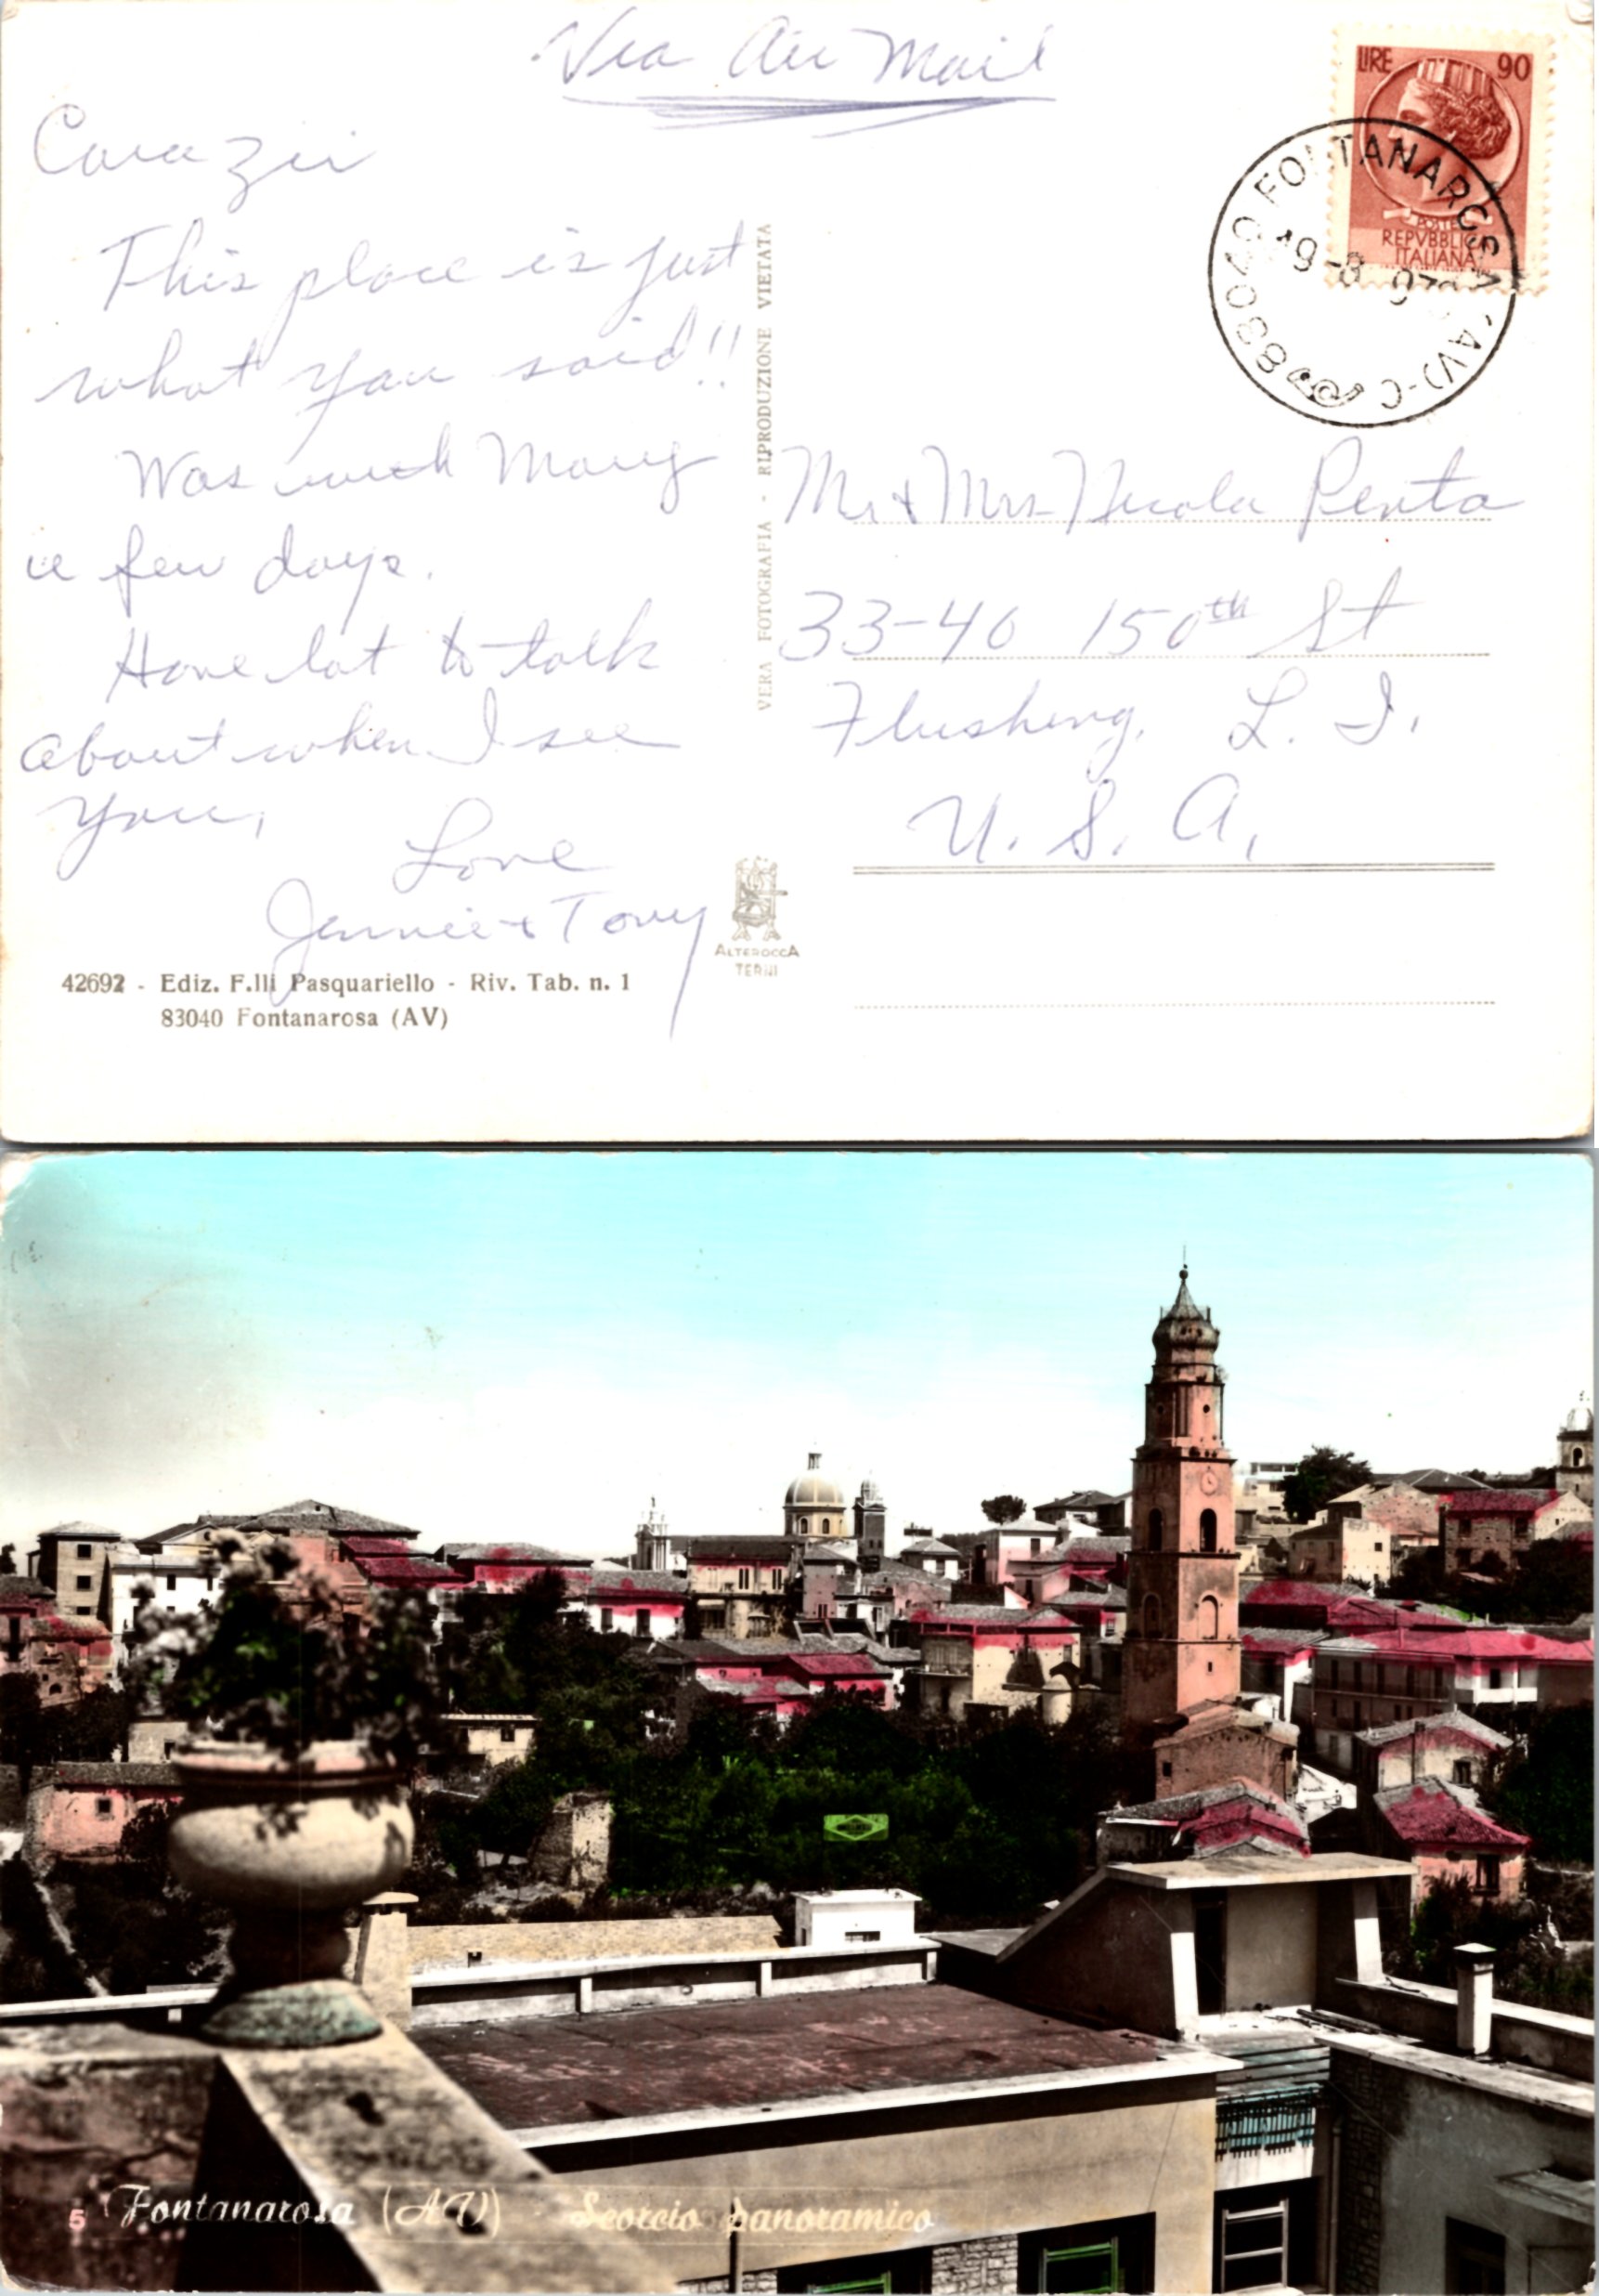 Via Air Mail
LIRE 90
POSTE
REPVBBLICA
ITALIANA
83040 FONTANAROSA (AV)-C
19-8
Cara Zii
This place is just
what you said!!
Was with Mary
a few days.
Have lot to talk
about when I see
you,
Love
Jennie + Tony
VERA FOTOGRAFIA - RIPRODUZIONE VIETATA
Mr + Mrs Nicola Penta
33-40 150th St
Flushing, L. I.
U. S. A.
ALTEROCCA
TERNI
42692 - Ediz. F.lli Pasquariello - Riv. Tab. n. 1
83040 Fontanarosa (AV)
5 Fontanarosa (AV) - Scorcio panoramico